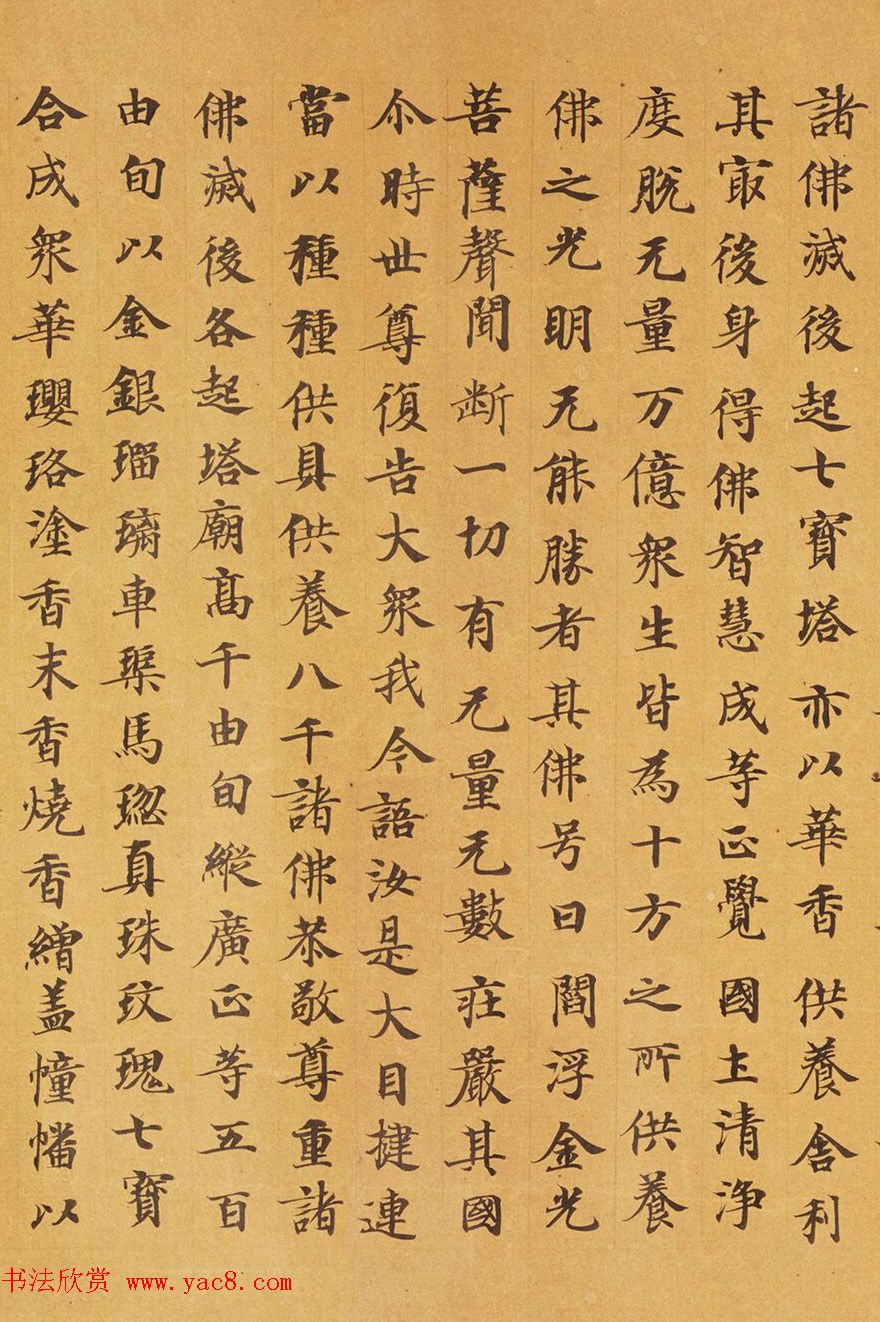 諸佛滅後起七寶塔亦以華香供養舎利
其㝡後身得佛智慧成等正覺國土清淨
度脫无量万億衆生皆為十方之所供養
佛之光明无能勝者其佛号曰閻浮金光
菩薩聲聞斷一切有无量无數莊嚴其國
尒時世尊復告大衆我今語汝是大目揵連
當以種種供具供養八千諸佛恭敬尊重諸
佛滅後各起塔廟高千由旬縱廣正等五百
由旬以金銀瑠璃車璖馬瑙真珠玫瑰七寶
合成衆華瓔珞塗香末香燒香繒盖幢幡以
书法欣赏 www.yac8.com